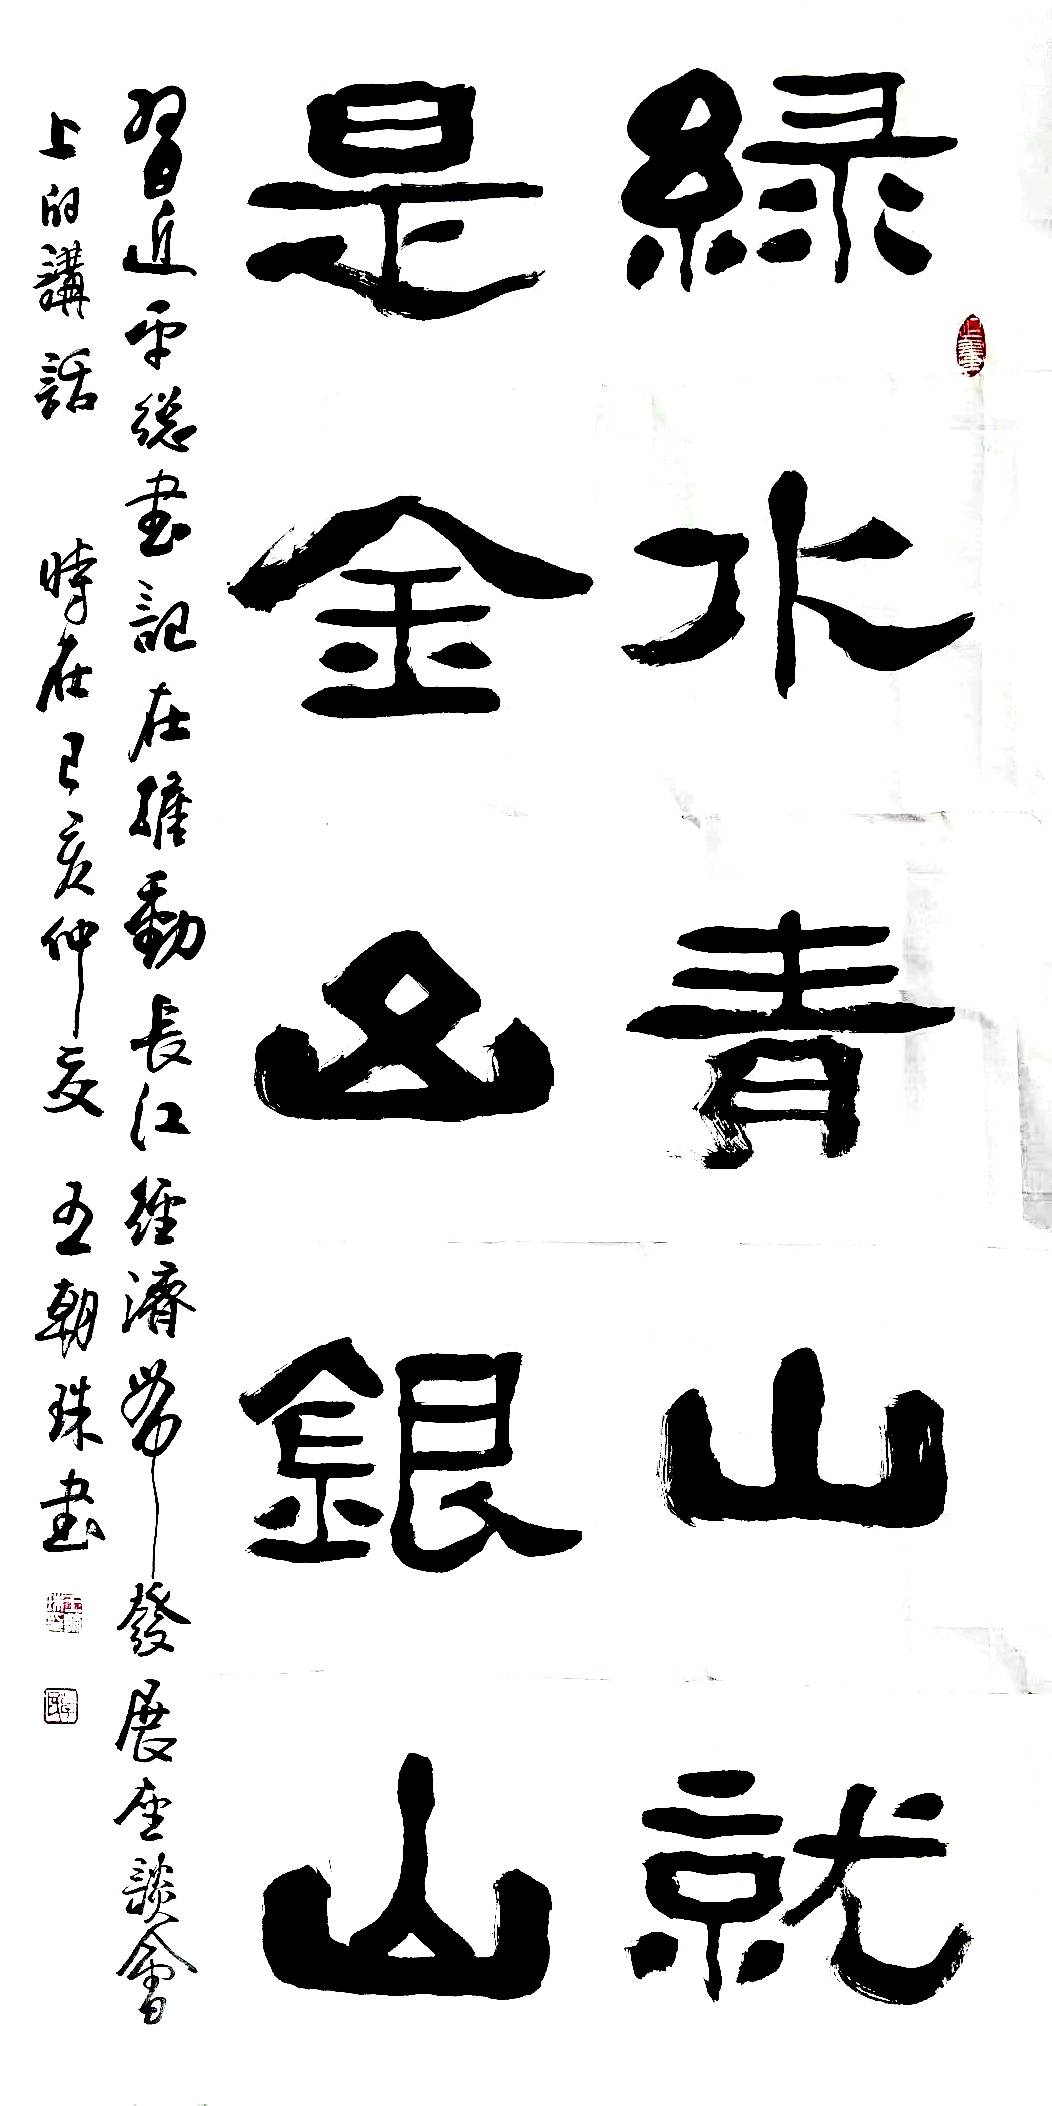 緑水青山就
是金山銀山
習近平總書記在推動長江經濟帶發展座談會
上的講話 時在己亥仲夏 王朝珠書